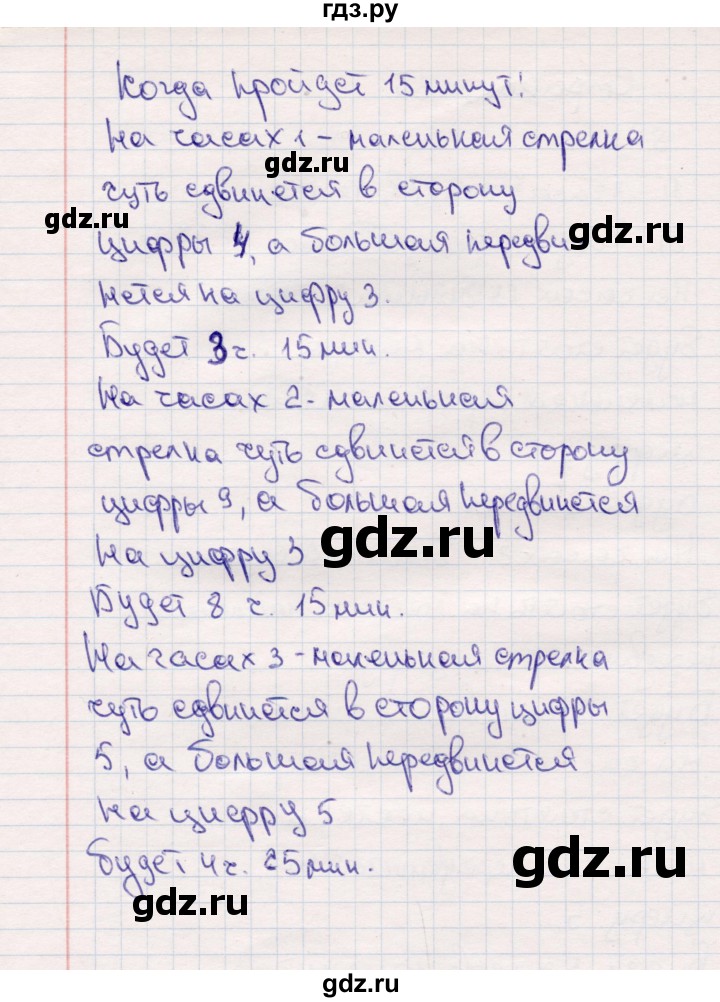 гдз.ру
Когда пройдёт 15 минут:
На часах 1 - маленькая стрелка
gdz.ru
чуть сдвинется в сторону
gdz.ru
gdz.ru
цифры 4, а большая передви
нется на цифру 3.
Будет 3 ч. 15 мин.
На часах 2 - маленькая
стрелка чуть сдвинется в сторону
цифры 9, а большая передвинется
gdz.ru
На цифру 3
Будет 8 ч. 15 мин.
На часах 3 - маленькая стрелка
чуть сдвинется в сторону цифры
5, а большая передвинется
На цифру 5
gdz.ru
Будет 4 ч. 25 мин.
gdz.ru
gdz.ru